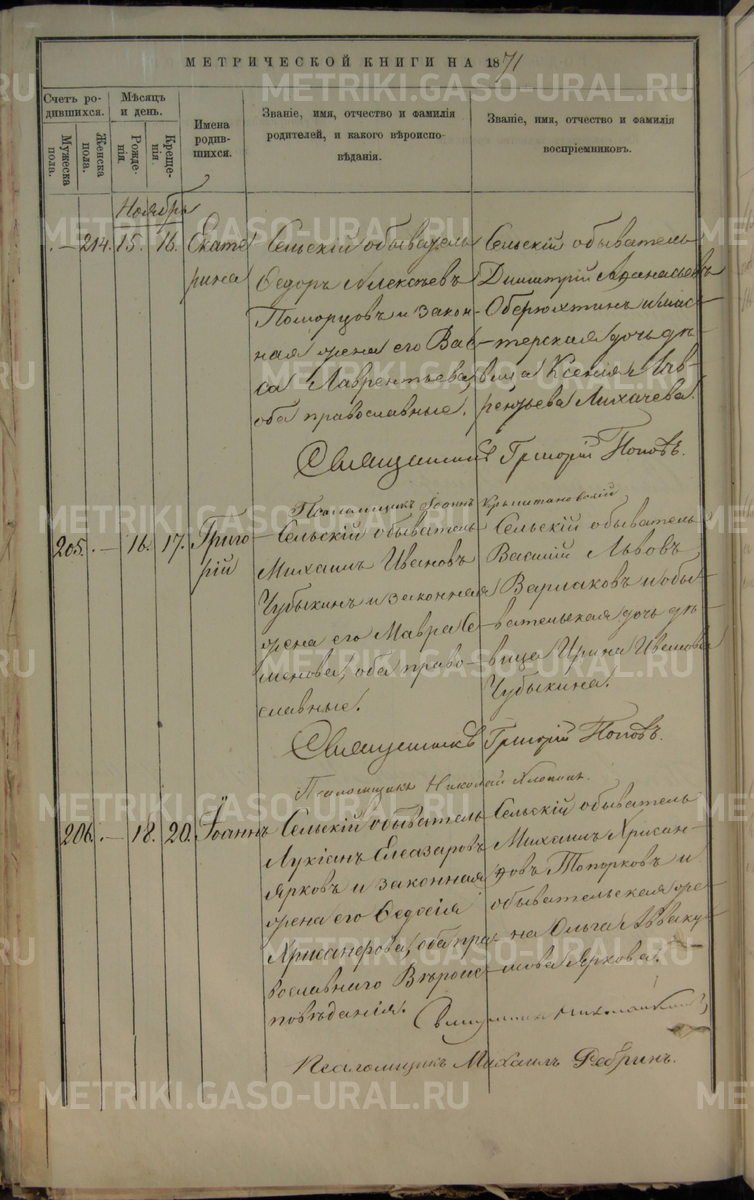 МЕТРИЧЕСКОЙ КНИГИ НА 1871
Счетъ ро-
дившихся.
Мужеска
пола.
Женска
пола.
Мѣсяцъ
и день.
Рожде-
нія
Креще-
нія
Имена
родив-
шихся.
Званіе, имя, отчество и фамилія
родителей, и какого вѣроиспо-
вѣданія.
Званіе, имя, отчество и фамилія
воспріемниковъ.
Ноябрь
— 214. 15. 16.
Екате
рина
Сельскій обыватель
Ѳедоръ Алексѣевъ
Поморцовъ и закон-
ная жена его Вас-
са Лаврентьева,
оба православные.
Сельскій обыватель
Димитрій Аѳанасьевъ
Оберюхтинъ и мас-
терская дочь дѣ-
вица Ксенія Лав-
рентьева Лихачева.
Священникъ Григорій Поповъ.
Псаломщикъ Іоаннъ
205. — 16. 17.
Григо-
рій
Сельскій обыватель
Михаилъ Ивановъ
Чубыкинъ и законная
жена его Мавра Се-
менова, оба право-
славные.
Сельскій обыватель
Василій Львовъ
Варлаковъ и обы-
вательская дочь дѣ-
вица Ирина Иванова
Чубыкина.
Священникъ Григорій Поповъ.
Псаломщикъ Николай
206. — 18. 20.
Іоаннъ
Сельскій обыватель
Лукіанъ Елеазаровъ
Ярковъ и законная
жена его Ѳедосія
Хрисанфова, оба пра-
вославнаго Вѣроис-
повѣданія.
Сельскій обыватель
Михаилъ Хрисан-
ѳовъ Топорковъ и
обывательская же-
на Ольга Авваку-
мова Яркова.
Священникъ
Псаломщикъ Михаилъ
METRIKI.GASO-URAL.RU